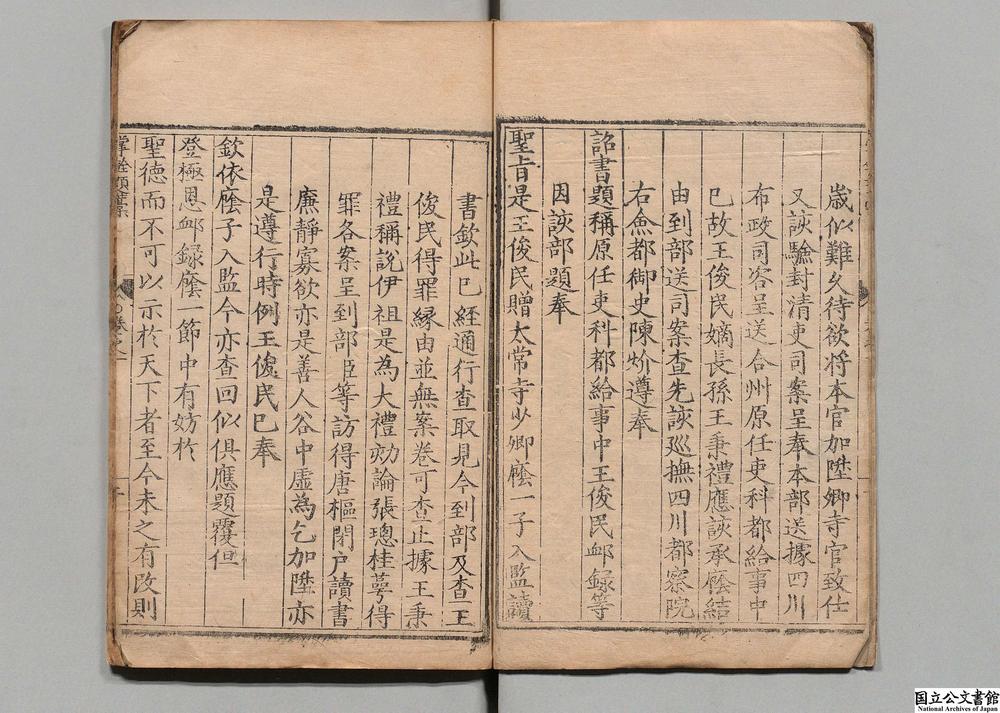 歲似難久待欲將本官加陞卿寺官致仕
又該驗封清吏司案呈奉本部送據四川
布政司咨呈送合州原任吏科都給事中
已故王俊民嫡長孫王秉禮應該承廕結
由到部送司案查先該廵撫四川都察院
右僉都御史陳炌遵奉
詔書題稱原任吏科都給事中王俊民衈録等
因該部題奉
聖旨是王俊民贈太常寺少卿廕一子入監讀
書欽此已經通行查取見今到部及查王
俊民得罪緣由並無案卷可查止據王秉
禮稱說伊祖是為大禮劾論張璁桂萼得
罪各案呈到部臣等訪得唐樞閉户讀書
廉靜寡欲亦是善人谷中虛為乞加陞亦
是遵行時例王俊民已奉
欽依廕子入監今亦查回似俱應題覆但
登極恩衈録廕一節中有妨於
聖德而不可以示於天下者至今未之有改則
掌銓題稾
国立公文書館
National Archives of Japan